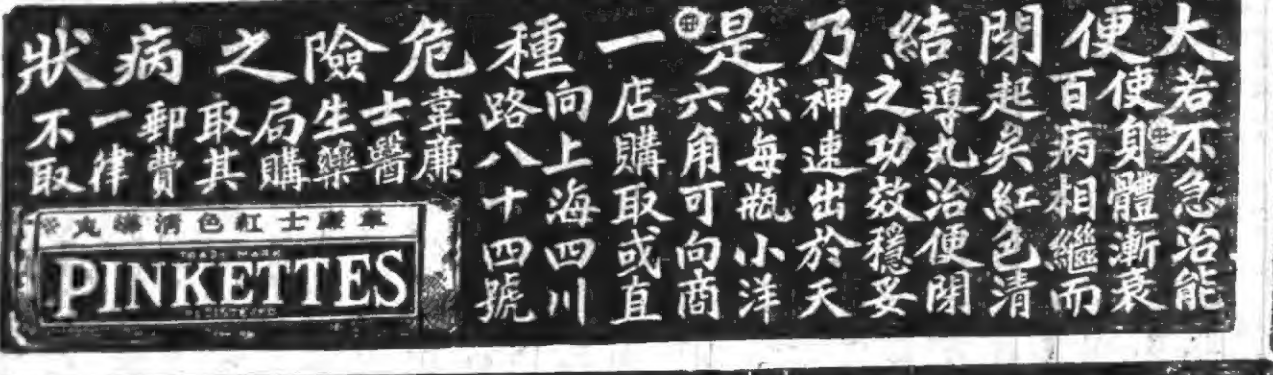 大便閉結乃是一種危險之病狀
若不急治能
使身體漸衰
百病相繼而
起矣紅色清
導丸治便閉
之功效穩妥
神速出於天
然每瓶小洋
六角可向商
店購取或直
向上海四川
路八十四號
韋廉
士醫
生藥
局購
取其
郵費
一律
不取
韋廉士紅色清導丸
TRADE MARK
PINKETTES
REGISTERED